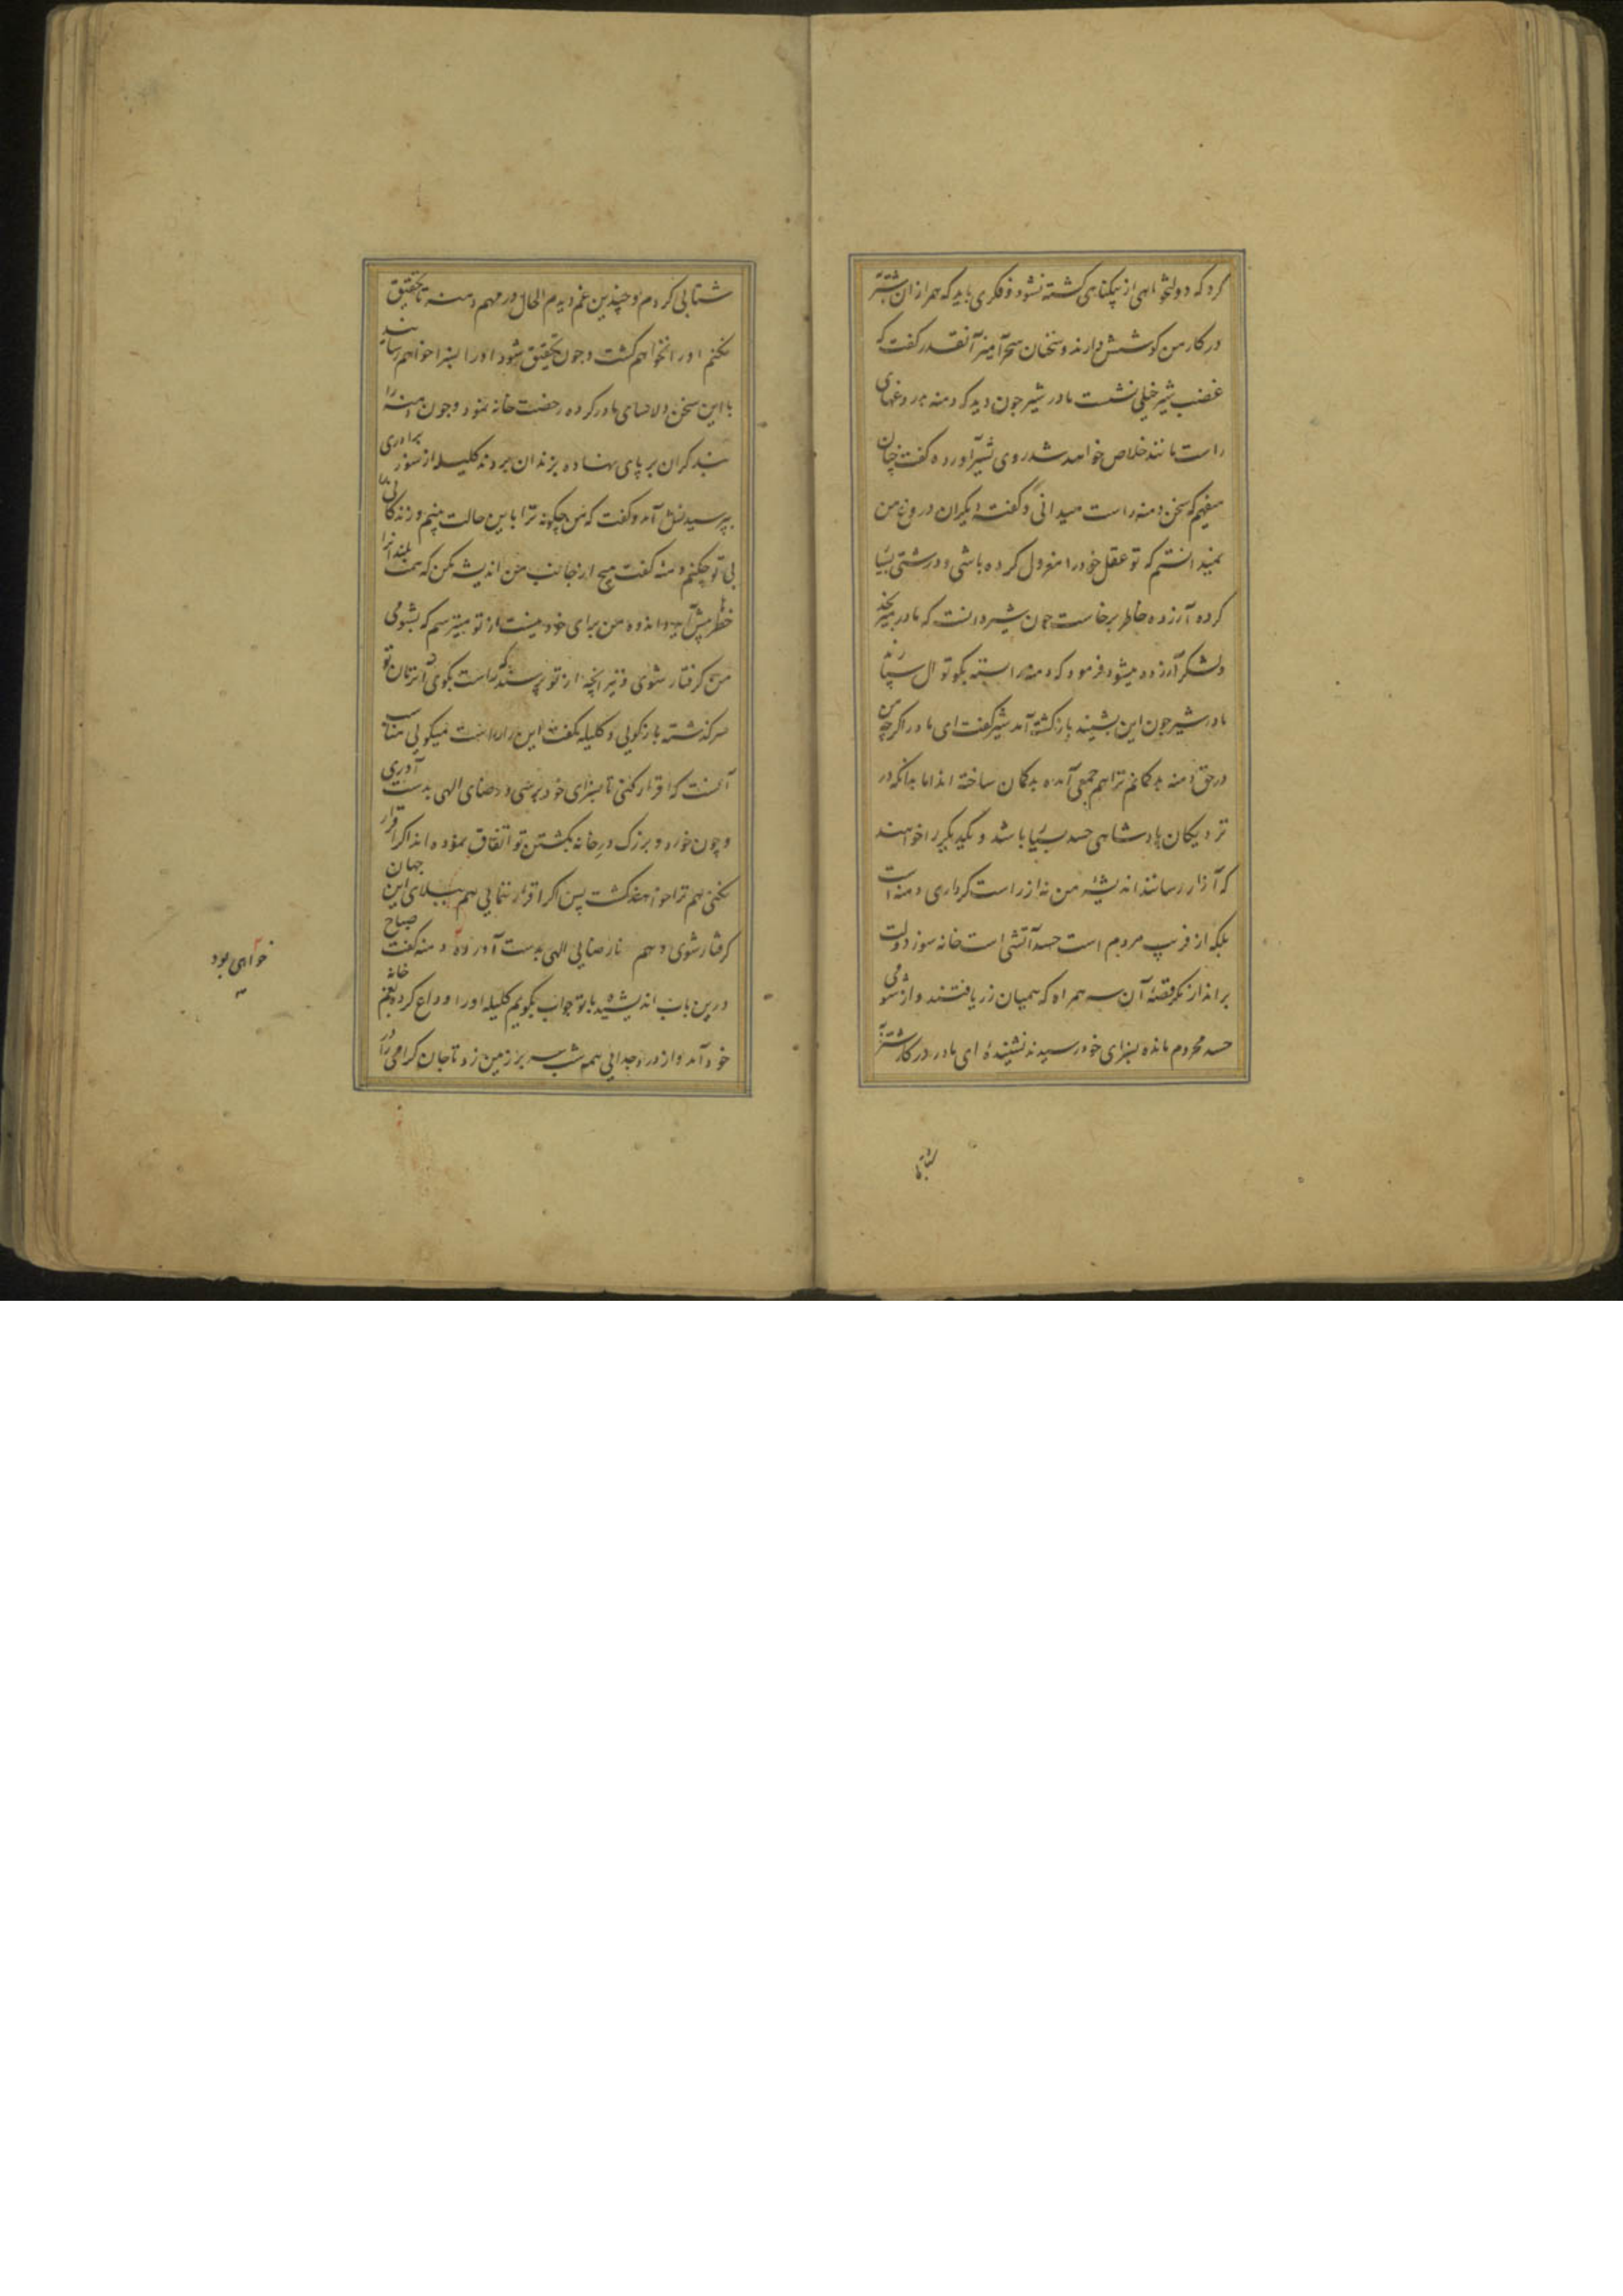 کرد که دولتخواهی از بیکناهی کشته نشود و فکری باید که همرازان شتر
در کار من کوشش دارند و سخنان سحرآمیز آنقدر کفت که
غضب شیر خیلی نشست مادر شیر چون دید که دمنه بدروغهای
راست مانند خلاص خواهد شد روی بشیر آورده کفت چنان
میفهم که سخن دمنه راست میدانی و کفت دیکران دروغ من
نمیدانستم که تو عقل خود را معزول کرده باشی و درشتی بسیا
کرده آزرده خاطر برخاست چون شیر دانست که مادر میرنجد
و لشکر آزرده میشود فرمود که دمنه را بسته بکوتوال سپارند
مادر شیر چون این بشنید بازکشته آمد شیر کفت ای مادر اکرچه من
در حق دمنه بدکمانم ترا هم جمعی آمده بدکمان ساخته اند اما بدانکه در
نزدیکان پادشاهی حسد بسیا باشد و یکدیکر را خواهند
که آزار رسانند اندیشهٔ من نه از راست کرداری دمنه است
بلکه از فریب مردم است حسد آتشی است خانه سوز دولت
برانداز نکر قصهٔ آن سه همراه که همیان زر یافتند و از شومی
حسد محروم مانده بسزای خود رسیدند نشنیدهٔ ای مادر در کار شتر
شتابی کردم و چندین غم دیدم الحال در مهم دمنه تا تحقیق
نکنم او را نخواهم کشت و چون تحقیق شود او را بسزا خواهم رسانید
با این سخن دلاسای مادر کرده رخصت خانه نمود و چون دمنه را
بند کران بر پای نهاده بزندان بردند کلیله از سوز برادری
بپرسیدنش آمد و کفت که من چکونه ترا باین حالت بینم و زندکانی
بی تو چکنم دمنه کفت هیچ از جانب من اندیشه مکن که همت بلندانرا
خطرها پیش آید و اندوه من برای خود نیست از تو میترسم که بشومی
من کرفتار شوی و نیز آنچه از تو پرسند که راست بکوی در آنزمان تو
سرکذشته بازکویی و کلیله کفت این راه راست میکویی مناسب
آنست که اقرار کنی تا بسزای خود برسی و رضای الهی بدست آوری
و چون خورد و بزرک درخانه بکشتن تو اتفاق نموده اند اکر اقرار
نکنی هم ترا خواهند کشت پس اکر اقرار ننمایی هم ببلای این جهان
کرفتار شوی و هم نارضایی الهی بدست آورده دمنه کفت صباح
درین باب اندیشیده با تو جواب بکویم کلیله او را وداع کرده بغم خانه
خود آمد و از درد جدایی همه شب سر بر زمین زد تا جان کرامی را در
خواهی بود
شتابی